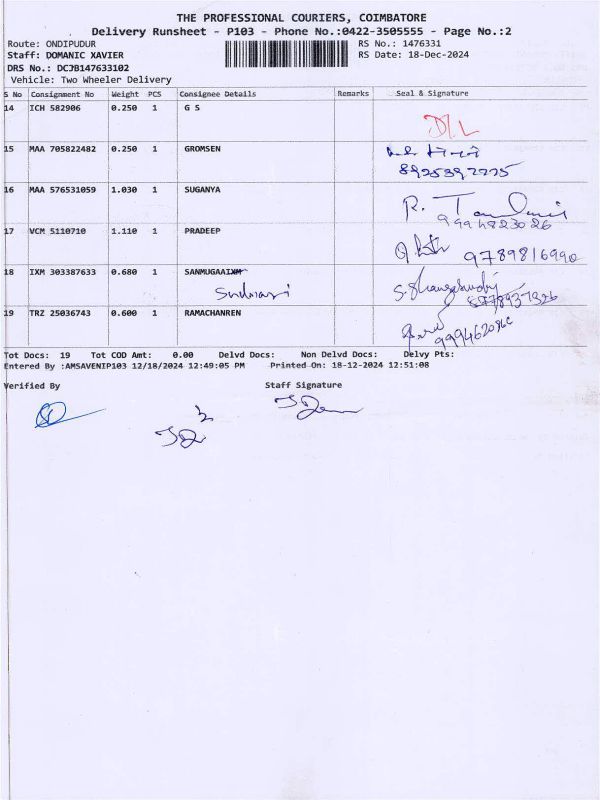 THE PROFESSIONAL COURIERS, COIMBATORE
Delivery Runsheet - P103 - Phone No.:0422-3505555 - Page No.:2
Route: ONDIPUDUR RS No.: 1476331
Staff: DOMANIC XAVIER RS Date: 18-Dec-2024
DRS No.: DCJB147633102
Vehicle: Two Wheeler Delivery
S No Consignment No Weight PCS Consignee Details Remarks Seal & Signature
14 ICH 582906 0.250 1 G S
15 MAA 705822482 0.250 1 GROMSEN
16 MAA 576531059 1.030 1 SUGANYA
17 VCM 5110710 1.110 1 PRADEEP
9789816990
18 IXM 303387633 0.680 1
19 TRZ 25036743 0.600 1 RAMACHANREN
Tot Docs: 19 Tot COD Amt: 0.00 Delvd Docs: Non Delvd Docs: Delvy Pts:
Entered By :AMSAVENIP103 12/18/2024 12:49:05 PM Printed On: 18-12-2024 12:51:08
Verified By Staff Signature